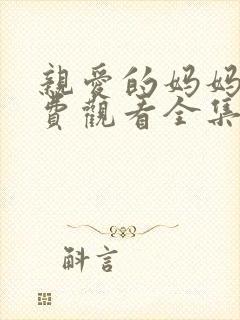 親愛的妈妈
費觀看全集
斛言